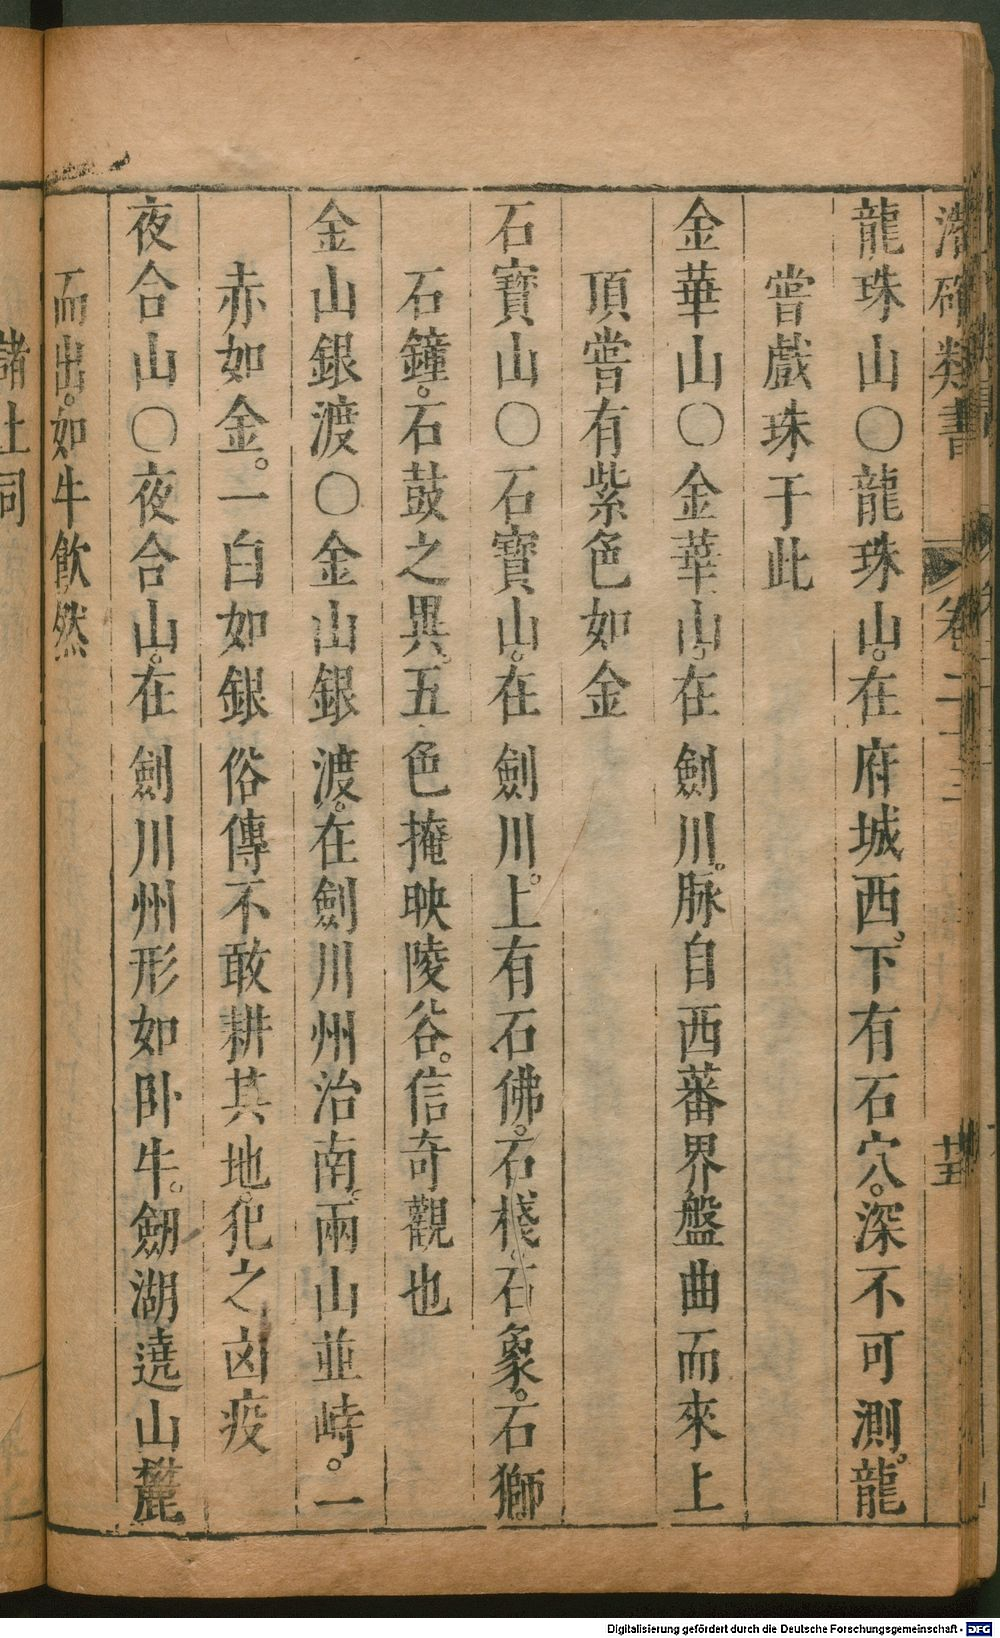 潛確類書 卷二十三 廿五
龍珠山〇龍珠山。在府城西。下有石穴。深不可測。龍
嘗戲珠于此
金華山〇金華山。在劍川。脉自西蕃界盤曲而來上
頂嘗有紫色如金
石寶山〇石寶山。在劍川。上有石佛。石棧。石象。石獅
石鐘。石鼓之異。五色掩映陵谷。信奇觀也
金山銀渡〇金山銀渡。在劍川州治南。兩山並峙。一
赤如金。一白如銀俗傳不敢耕其地。犯之凶疫
夜合山〇夜合山。在劍川州形如臥牛。劒湖遶山麓
而出。如牛飲然
諸土司
Digitalisierung gefördert durch die Deutsche Forschungsgemeinschaft - DFG